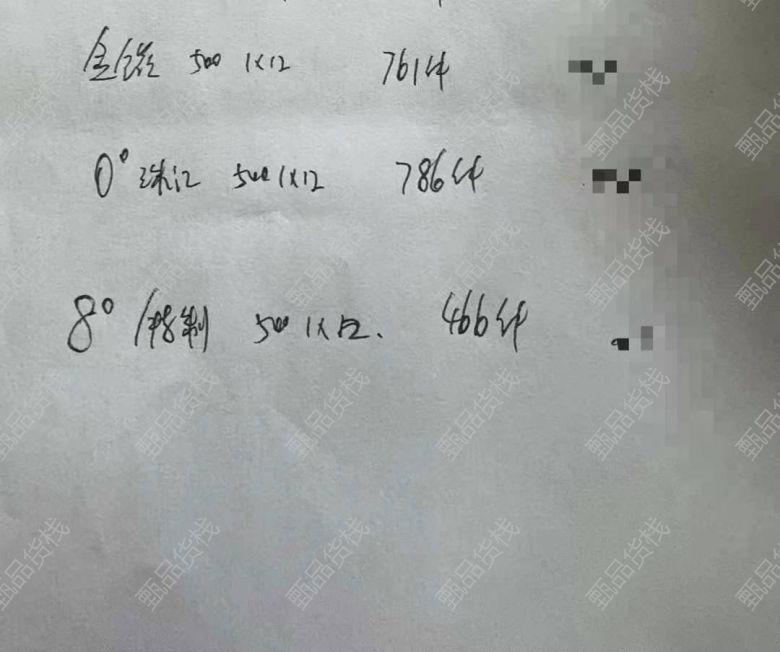 500 1X12 761件
0° 珠江 500 1X12 786件
8° 精制 500 1X12. 466件
甄品货栈